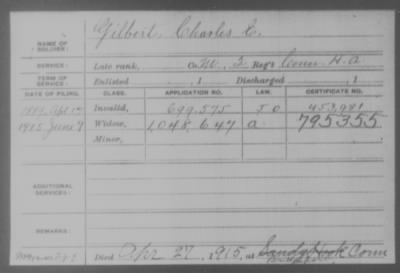 NAME OF SOLDIER: Gilbert, Charles E.
SERVICE: Late rank, Co. M, 2 Reg't Conn H.A
TERM OF SERVICE: Enlisted , 1 Discharged , 1
DATE OF FILING. CLASS. APPLICATION NO. LAW. CERTIFICATE NO.
Invalid, 699,575 453,981
1915 June 7 Widow, 1,048,647 a. 795355
Minor,
ADDITIONAL SERVICES:
REMARKS:
Died Apr 27, 1915, at Sandy Hook Conn